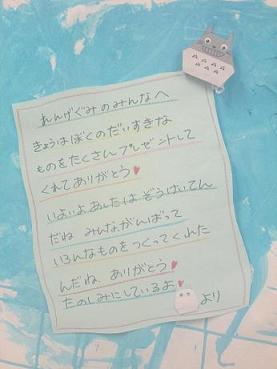 れんげぐみのみんなへ
きょうはぼくのだいすきな
ものをたくさんプレゼントして
くれてありがとう♥
いよいよあしたはぞうけいてん
だね みんながんばって
いろんなものをつくってくれた
んだね ありがとう♥
たのしみにしているよ♥
より